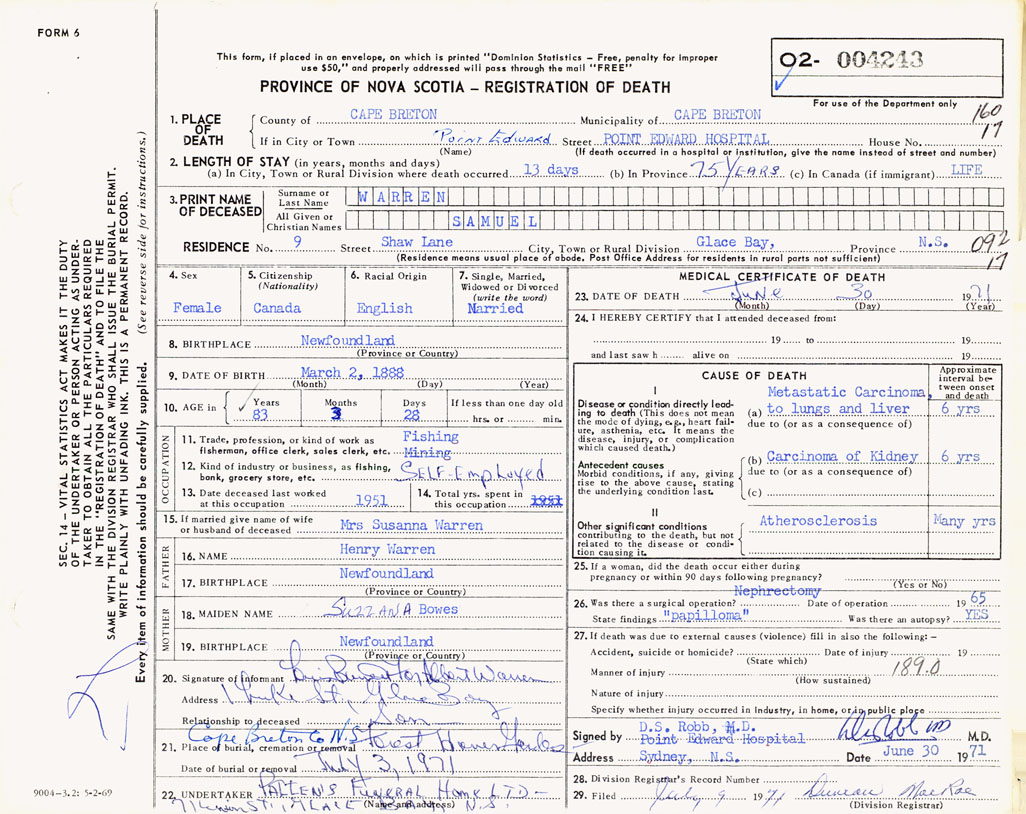 FORM 6
This form, if placed in an envelope, on which is printed "Dominion Statistics – Free, penalty for improper
use $50," and properly addressed will pass through the mail "FREE"
PROVINCE OF NOVA SCOTIA – REGISTRATION OF DEATH
O2- 004243
For use of the Department only
160
17
1. PLACE OF DEATH
County of CAPE BRETON Municipality of CAPE BRETON
If in City or Town Point Edward Street POINT EDWARD HOSPITAL House No.
(Name) (If death occurred in a hospital or institution, give the name instead of street and number)
2. LENGTH OF STAY (in years, months and days)
(a) In City, Town or Rural Division where death occurred 13 days (b) In Province 75 YEARS (c) In Canada (if immigrant) LIFE
3. PRINT NAME OF DECEASED
Surname or Last Name WARREN
All Given or Christian Names SAMUEL
RESIDENCE No. 9 Street Shaw Lane City, Town or Rural Division Glace Bay, Province N.S.
(Residence means usual place of abode. Post Office Address for residents in rural parts not sufficient)
092
17
4. Sex
Female
5. Citizenship
(Nationality)
Canada
6. Racial Origin
English
7. Single, Married,
Widowed or Divorced
(write the word)
Married
8. BIRTHPLACE Newfoundland
(Province or Country)
9. DATE OF BIRTH March 2, 1888
(Month) (Day) (Year)
10. AGE in Years Months Days If less than one day old
83 3 28 hrs. or min.
OCCUPATION
11. Trade, profession, or kind of work as Fishing
fisherman, office clerk, sales clerk, etc. Mining
12. Kind of industry or business, as fishing, SELF-Employed
bank, grocery store, etc.
13. Date deceased last worked
at this occupation 1951
14. Total yrs. spent in
this occupation 1951
15. If married give name of wife
or husband of deceased Mrs Susanna Warren
FATHER
16. NAME Henry Warren
17. BIRTHPLACE Newfoundland
(Province or Country)
MOTHER
18. MAIDEN NAME SUZZANA Bowes
19. BIRTHPLACE Newfoundland
(Province or Country)
20. Signature of Informant Warren
Address St, Glace Bay
Relationship to deceased Son
Cape Breton Co N.S.
21. Place of burial, cremation or removal
Date of burial or removal July 3, 1971
22. UNDERTAKER PATTEN'S FUNERAL HOME LTD –
(Name and address) N.S.
MEDICAL CERTIFICATE OF DEATH
23. DATE OF DEATH June 30 1971
(Month) (Day) (Year)
24. I HEREBY CERTIFY that I attended deceased from:
19 to 19
and last saw h alive on 19
CAUSE OF DEATH
Approximate interval between onset and death
I
Disease or condition directly leading to death (This does not mean the mode of dying, e.g., heart failure, asthenia, etc. It means the disease, injury, or complication which caused death.)
Metastatic Carcinoma,
(a) to lungs and liver 6 yrs
due to (or as a consequence of)
Antecedent causes
Morbid conditions, if any, giving rise to the above cause, stating the underlying condition last.
(b) Carcinoma of Kidney 6 yrs
due to (or as a consequence of)
(c)
II
Other significant conditions contributing to the death, but not related to the disease or condition causing it.
Atherosclerosis Many yrs
25. If a woman, did the death occur either during
pregnancy or within 90 days following pregnancy?
(Yes or No)
Nephrectomy
26. Was there a surgical operation? Date of operation 19 65
State findings "papilloma" Was there an autopsy? YES
27. If death was due to external causes (violence) fill in also the following: –
Accident, suicide or homicide? Date of injury 19
(State which)
Manner of injury 189.0
(How sustained)
Nature of injury
Specify whether injury occurred in industry, in home, or in public place
D.S. Robb, M.D.
Signed by Point Edward Hospital M.D.
Address Sydney, N.S. Date June 30 1971
28. Division Registrar's Record Number
29. Filed July 9 1971 Duncan MacRae
(Division Registrar)
SEC. 14 – VITAL STATISTICS ACT MAKES IT THE DUTY
OF THE UNDERTAKER OR PERSON ACTING AS UNDER-
TAKER TO OBTAIN ALL THE PARTICULARS REQUIRED
IN THE "REGISTRATION OF DEATH" AND TO FILE THE
SAME WITH THE DIVISION REGISTRAR WHO SHALL ISSUE THE BURIAL PERMIT.
WRITE PLAINLY WITH UNFADING INK. THIS IS A PERMANENT RECORD.
Every item of information should be carefully supplied. (See reverse side for instructions.)
9004-3.2: 5-2-69